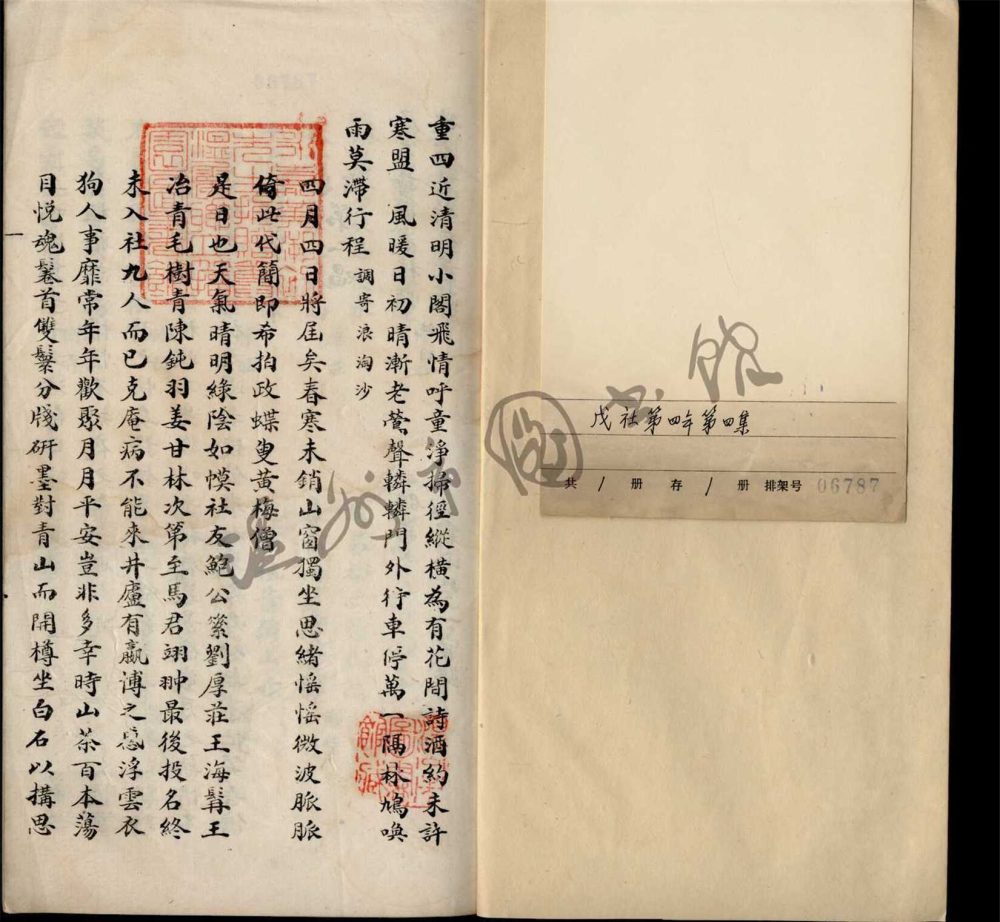 重四近清明小閣飛情呼童淨掃徑縱橫為有花間詩酒約未許
寒盟　風暖日初晴漸老鶯聲轔轔門外行車停萬一隔林鳩喚
雨莫滯行程 調寄浪淘沙
四月四日將屆矣春寒未銷山窗獨坐思緒愮愮微波脈脈
倚此代簡即希拍政蝶叟黃梅僧
是日也天氣晴明綠陰如幙社友鮑公籞劉厚莊王海髯王
冶青毛樹青陳鈍羽姜甘林次第至馬君翊翀最後投名終
未入社九人而已克庵病不能來井廬有嬴博之慼浮雲衣
狗人事靡常年年歡聚月月平安豈非多幸時山茶百本蕩
目悅魂鬈首雙鬟分牋研墨對青山而開樽坐白石以搆思
戊社第四年第四集
共 / 册 存 / 册 排架号 06787
温州市图书馆